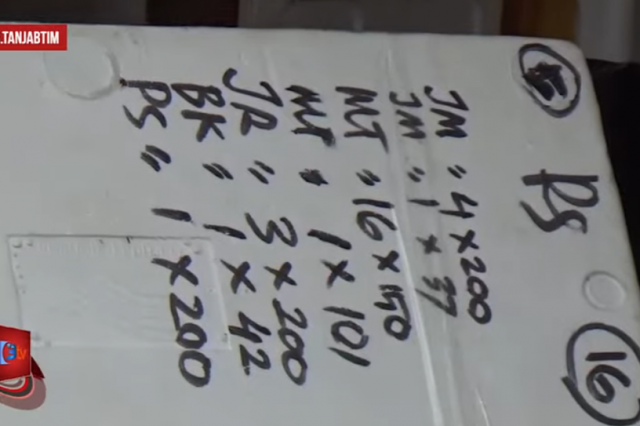 .TANJABTIM
RS
16
JM " 4 x 200
JM " 1 x 37
MJ " 16 x 150
MJ " 1 x 101
JR " 3 x 200
BK " 1 x 42
PS " 1 x 200
tv